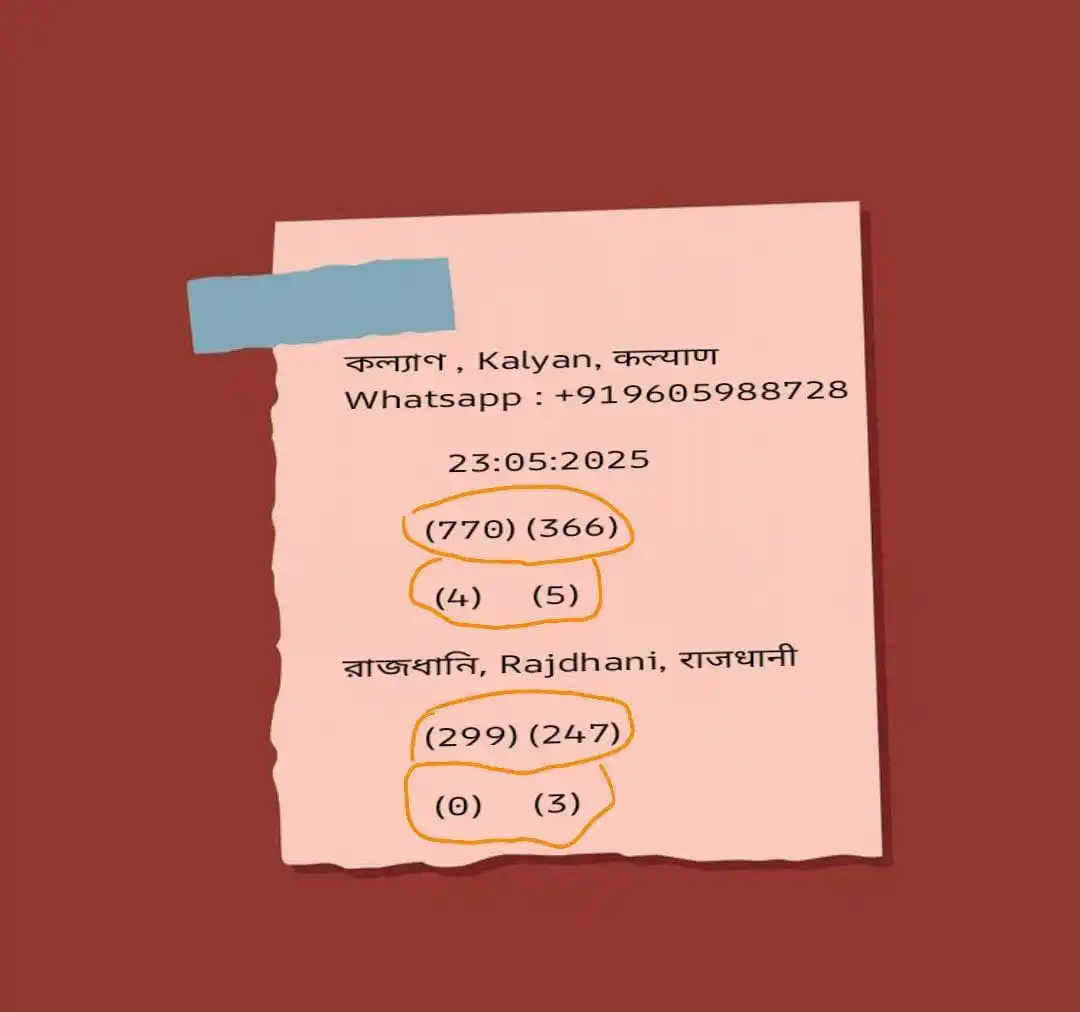 কল্যাণ , Kalyan, कल्याण
Whatsapp : +919605988728
23:05:2025
(770) (366)
(4) (5)
রাজধানি, Rajdhani, राजधानी
(299) (247)
(0) (3)